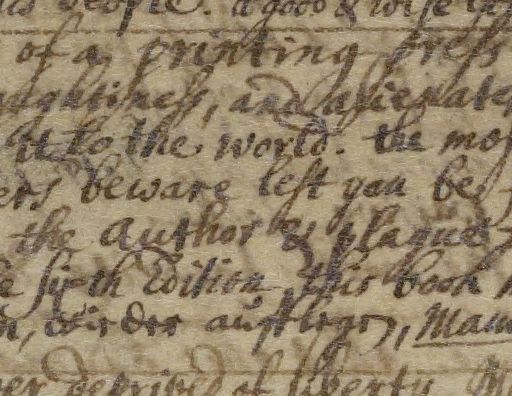 people. a good & wise
of a printing press
aughtiness, and
it to the world. the mos
ers beware lest you be
the author & plague
sixth Edition this book
wieder aufflegen, Man
er deprived of liberty